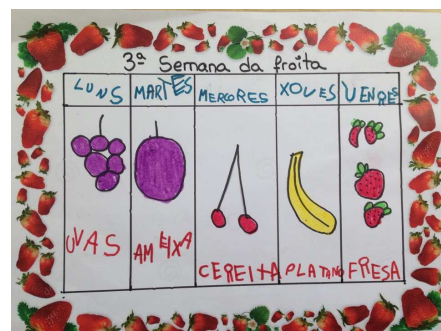 3ª Semana da froita
LUNS MARTES MERCORES XOVES VENRES
UVAS AMEIXA CEREITA PLATANO FRESA